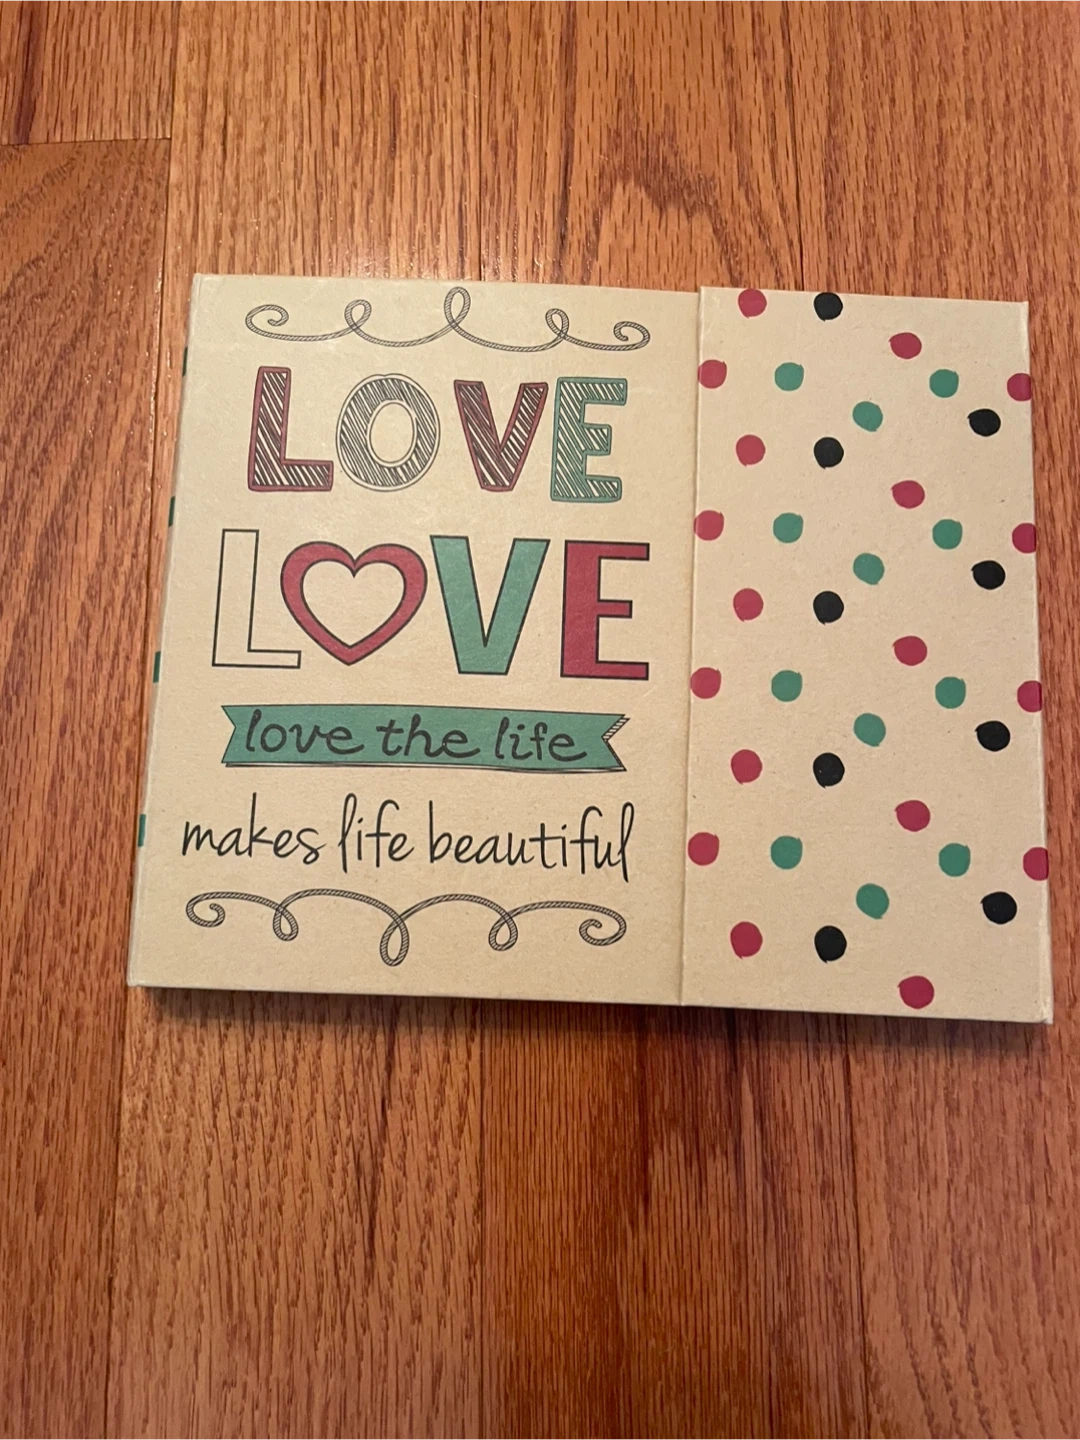 LOVE
LOVE
love the life
makes life beautiful